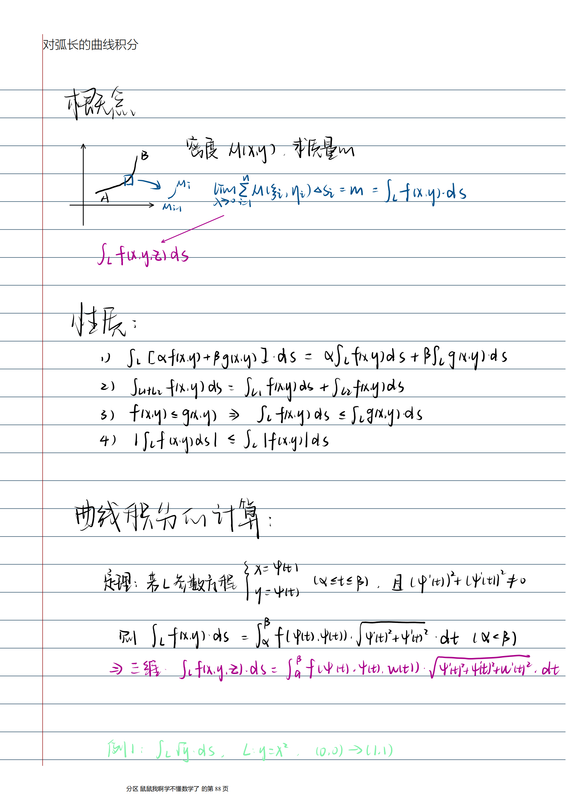 对弧长的曲线积分
概念
密度 μ(x,y), 求质量m
B
A
Mi
Mi-1
lim λ→0 ∑ i=1 n μ(ξi, ηi)Δsi = m = ∫L f(x,y)·ds
∫L f(x,y,z)ds
性质:
1) ∫L [αf(x,y)+βg(x,y)]·ds = α∫L f(x,y)ds + β∫L g(x,y)·ds
2) ∫L1+L2 f(x,y)ds = ∫L1 f(x,y)ds + ∫L2 f(x,y)ds
3) f(x,y) ≤ g(x,y) ⇒ ∫L f(x,y)ds ≤ ∫L g(x,y)·ds
4) |∫L f(x,y)ds| ≤ ∫L |f(x,y)|ds
曲线积分的计算:
定理: 若L参数方程 { x=φ(t) y=ψ(t) (α≤t≤β), 且 (φ'(t))²+(ψ'(t))²≠0
则 ∫L f(x,y)·ds = ∫α β f(φ(t),ψ(t))·√φ'(t)²+ψ'(t)²·dt (α<β)
⇒三维: ∫L f(x,y,z)·ds = ∫α β f(φ(t),ψ(t),ω(t))·√φ'(t)²+ψ'(t)²+ω'(t)²·dt
例1: ∫L √y·ds, L: y=x², (0,0)→(1,1)
分区 鼠鼠我啊学不懂数学了 的第 88 页